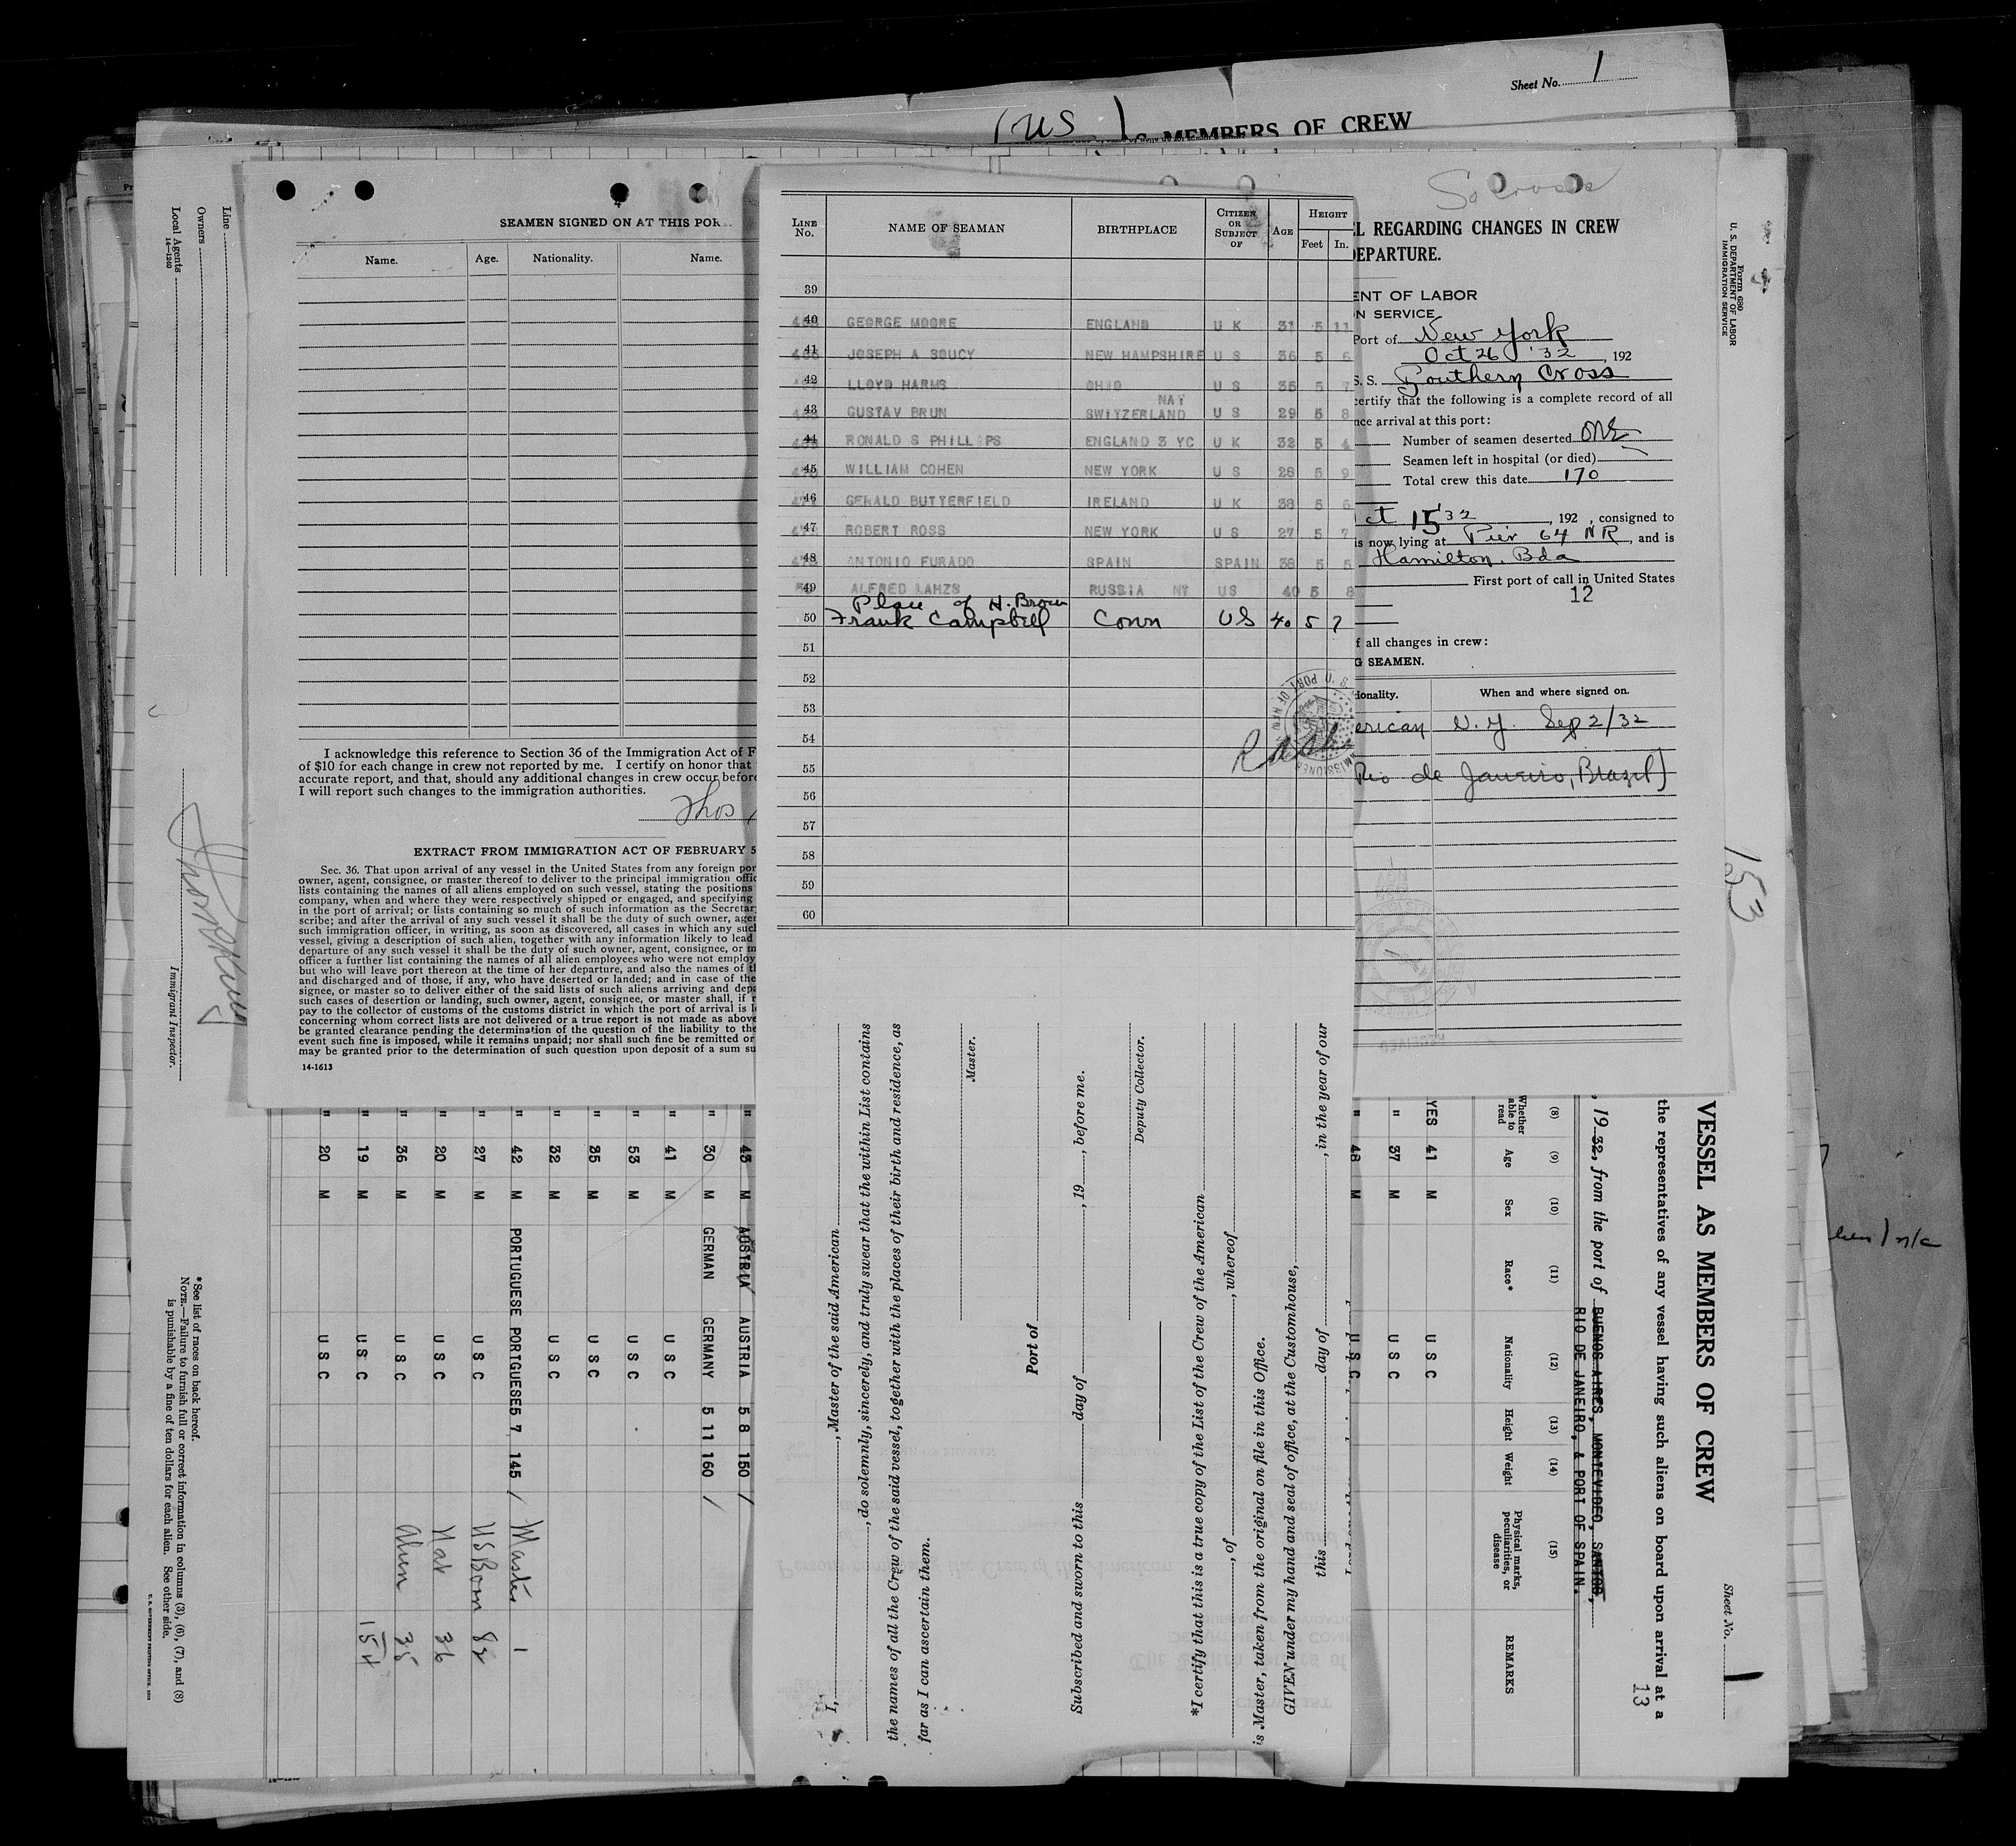 Sheet No. 1
(US)
MEMBERS OF CREW
Line
Owners
Local Agents
14-1240
Immigrant Inspector.
*See list of races on back hereof.
NOTE.—Failure to furnish full or correct information in columns (3), (6), (7), and (8)
is punishable by a fine of ten dollars for each alien. See other side.
SEAMEN SIGNED ON AT THIS POR
Name. Age. Nationality. Name.
I acknowledge this reference to Section 36 of the Immigration Act of F
of $10 for each change in crew not reported by me. I certify on honor that
accurate report, and that, should any additional changes in crew occur before
I will report such changes to the immigration authorities.
Thos
EXTRACT FROM IMMIGRATION ACT OF FEBRUARY 5
Sec. 36. That upon arrival of any vessel in the United States from any foreign por
owner, agent, consignee, or master thereof to deliver to the principal immigration offic
lists containing the names of all aliens employed on such vessel, stating the positions
company, when and where they were respectively shipped or engaged, and specifying
in the port of arrival; or lists containing so much of such information as the Secretar
scribe; and after the arrival of any such vessel it shall be the duty of such owner, agen
such immigration officer, in writing, as soon as discovered, all cases in which any such
vessel, giving a description of such alien, together with any information likely to lead
departure of any such vessel it shall be the duty of such owner, agent, consignee, or m
officer a further list containing the names of all alien employees who were not employ
but who will leave port thereon at the time of her departure, and also the names of t
and discharged and of those, if any, who have deserted or landed; and in case of the
signee, or master so to deliver either of the said lists of such aliens arriving and depa
such cases of desertion or landing, such owner, agent, consignee, or master shall, if r
pay to the collector of customs of the customs district in which the port of arrival is l
concerning whom correct lists are not delivered or a true report is not made as above
be granted clearance pending the determination of the question of the liability to the
event such fine is imposed, while it remains unpaid; nor shall such fine be remitted or
may be granted prior to the determination of such question upon deposit of a sum su
14-1613
LINE No. NAME OF SEAMAN BIRTHPLACE CITIZEN OR SUBJECT OF AGE HEIGHT Feet In.
39
40 GEORGE MOORE ENGLAND U K 31 5 11
41 JOSEPH A SOUCY NEW HAMPSHIRE U S 36 5 6
42 LLOYD HARMS OHIO U S 35 5 7
NAT
43 GUSTAV BRUN SWITZERLAND U S 29 5 8
44 RONALD S PHILLIPS ENGLAND 3 YC U K 32 5 4
45 WILLIAM COHEN NEW YORK U S 28 5 9
46 GERALD BUTTERFIELD IRELAND U K 38 5 6
47 ROBERT ROSS NEW YORK U S 27 5 7
48 ANTONIO FURADO SPAIN SPAIN 38 5 5
49 ALFRED LAHZS RUSSIA NT US 40 5 8
Place of H. Brown
50 Frank Campbell Conn US 40 5 7
51
52
53
54
55
56
57
58
59
60
I, , Master of the said American
, do solemnly, sincerely, and truly swear that the within List contains
the names of all the Crew of the said vessel, together with the places of their birth and residence, as
far as I can ascertain them.
Master.
Port of
Subscribed and sworn to this day of , 19 , before me.
Deputy Collector.
*I certify that this is a true copy of the List of the Crew of the American
, of , whereof
is Master, taken from the original on file in this Office.
GIVEN under my hand and seal of office, at the Customhouse,
this day of , in the year of our
L REGARDING CHANGES IN CREW
EPARTURE.
ENT OF LABOR
N SERVICE
Port of New York
Oct 26 '32, 192
S. S. Southern Cross
certify that the following is a complete record of all
nce arrival at this port:
Number of seamen deserted one
Seamen left in hospital (or died)
Total crew this date 170
ct 15 '32, 192 , consigned to
is now lying at Pier 64 NR, and is
Hamilton, Bda
First port of call in United States
12
f all changes in crew:
G SEAMEN.
ionality. When and where signed on.
erican N.Y. Sep 2/32
Rio de Janeiro, Brazil)
Form 680
U. S. DEPARTMENT OF LABOR
IMMIGRATION SERVICE
153
VESSEL AS MEMBERS OF CREW
Sheet No. 1
the representatives of any vessel having such aliens on board upon arrival at a
13
, 19 32, from the port of BUENOS AIRES, MONTEVIDEO, SANTOS,
RIO DE JANEIRO, & PORT OF SPAIN.
(8) (9) (10) (11) (12) (13) (14) (15)
Whether able to read Age Sex Race* Nationality Height Weight Physical marks, peculiarities, or disease REMARKS
YES 41 M U S C
" 37 M U S C
" 48 M U S C
" 43 M AUSTRIA AUSTRIA 5 8 150 /
" 30 M GERMAN GERMANY 5 11 160 /
" 41 M U S C
" 53 M U S C
" 35 M U S C
" 32 M U S C
" 42 M PORTUGUESE PORTGUESE 5 7 145 / Master 1
" 27 M U S C US Born 82
" 20 M U S C Nat 36
" 36 M U S C Alien 35
" 19 M U S C 154
" 20 M U S C